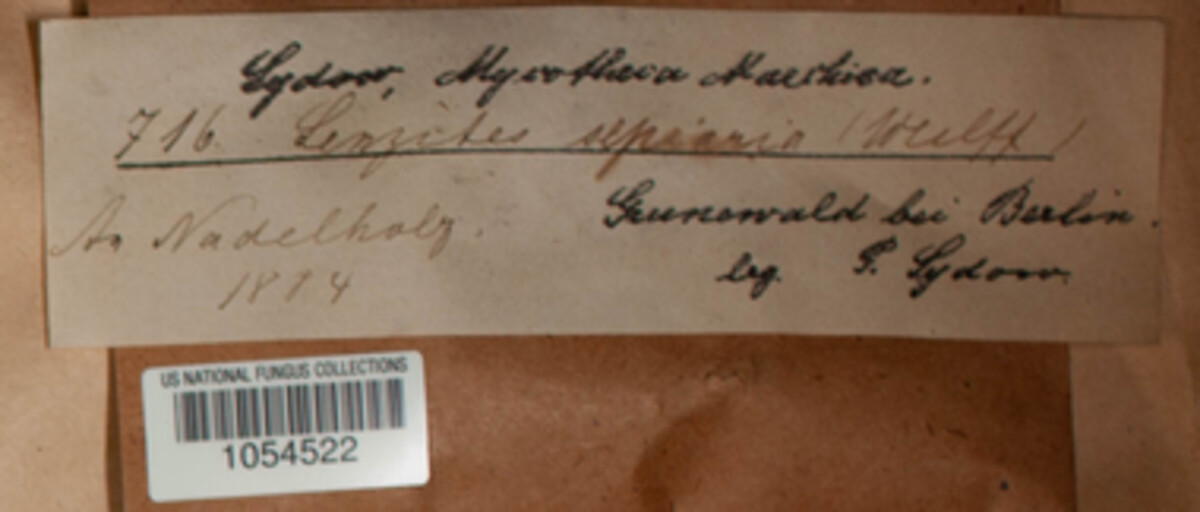 Sydow, Mycotheca Marchica.
716. Lenzites sepiaria (Wulff)
An Nadelholz.
Grunewald bei Berlin.
1884
leg. P. Sydow.
US NATIONAL FUNGUS COLLECTIONS
1054522